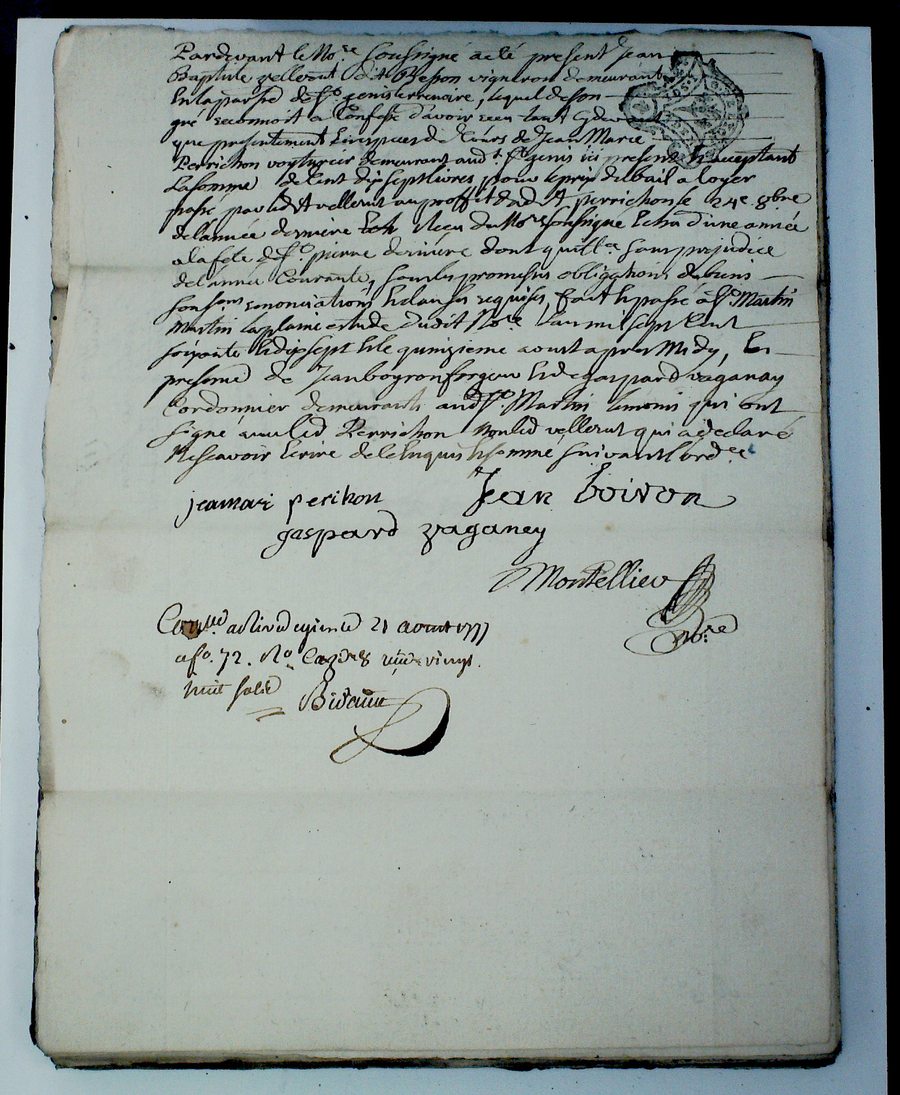 Pardevant le No.re soussigné a eté present jean
Baptiste vellerut dit Besson vigneron demeurant
En la parsse de St genis terrenoire, lequel de son
gré reconnoit a Confesse d'avoir recu tant cydev
que presentement En especes de Cours de Jean Marie
Perrichon voytureur demeurant aud.t St genis ici present Et acceptant
La somme de Cent dix sept livres pour le prix du bail a loyer
passé par led.t vellerut au proffit dud.t perrichon le 24e 8bre
de l'année derniere Recu du No.re soussigné Echu d'une année
a la fete de St pierre derniere dont quitt.ce sans prejudice
de l'année Courante, sous les promesses obligations de biens
renonciations Et clauses requises, fait Et passé a St Martin
Martin la plaine etude dudit No.re L'an mil sept Cent
soixante Et dix sept Et le quinzieme aoust apres Midy, En
presence de Jean boyron forgeur Et de gaspard vaganay
Cordonnier demeurants aud. St Martin temoins qui ont
signé avec led Perrichon Non led vellerut qui a declaré
Ne scavoir Ecrire de ce Enquis Et sommé suivant l'ord.ce
jeamari perikon Jean boiron
gaspard vaganey
Montellier
No.re
Con.lé a Rivedegier le 21 aoust 1777
a fo. 72. Ro Cazes 8
huit sols Bidaud